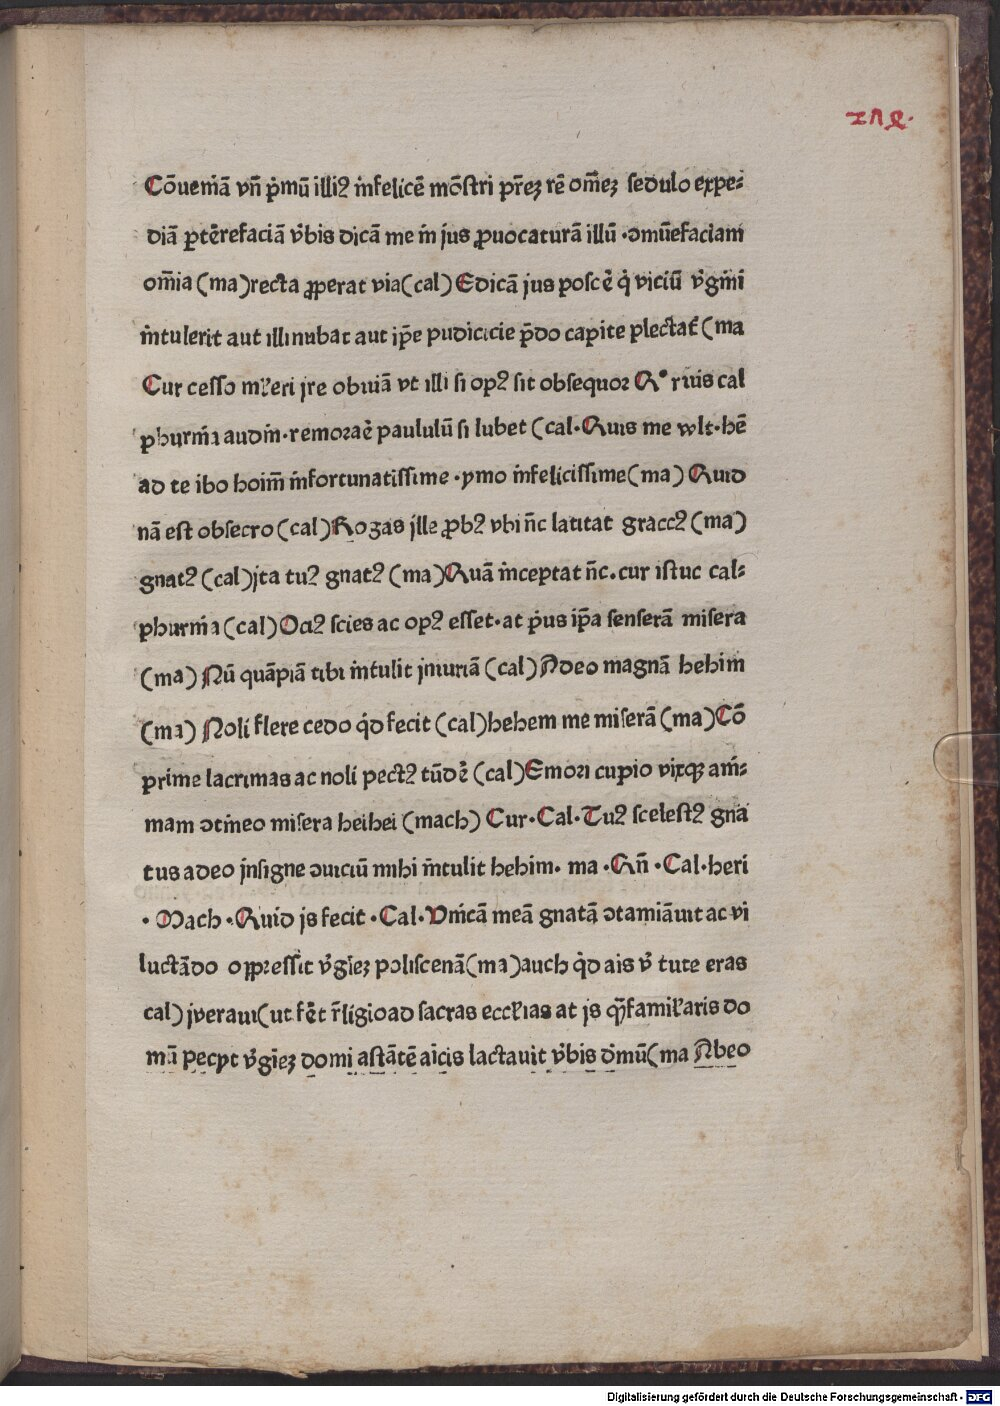 Cōueniā vn̄ p̍mū illiꝰ infelicē mōstri pr̄eꝫ rē om̄eꝫ sedulo expe⸗
diā ꝑtērefaciā v̄bis dicā me in jus ꝓuocaturā illū ·ɔmūefaciam
om̄ia (ma)recta ꝓperat via(cal) Edicā jus poscē q̍ viciū v̍gini
intulerit aut illi nubat aut ip̄e pudicicie p̄do capite plectat᷑ (ma
Cur cesso mr̄eri jre obuiā vt illi si opꝰ sit obsequor
phurnia audin·remoraē paululū si lubet (cal·Quis me wlt·hē
ad te ibo hoim̄ infortunatissime ·ymo infelicissime(ma) Quid
nā est obsecro (cal)Rogas jlle ꝓbꝰ vbi n̄c latitat graccꝰ (ma)
gnatꝰ (cal)jta tuꝰ gnatꝰ (ma)Quā inceptat n̄c.cur istuc cal⸗
phurnia (cal)Ociꝰ scies ac opꝰ esset·at p̍us ip̄a senserā misera
(ma) Nū quāpiā tibi intulit jniuriā (cal)Adeo magnā hehim
(ma) Noli flere cedo q̍d fecit (cal)hehem me miserā (ma)Cō
prime lacrimas ac noli pectꝰ tūdē (cal)Emori cupio vixqꝫ am̄⸗
mam ɔtineo misera heihei (mach) Cur·Cal·Tuꝰ scelestꝰ gna
tus adeo jnsigne ɔuiciū mihi intulit hehim· ma ·Qn̄ ·Cal·heri
· Mach ·Quid js fecit ·Cal·Vnicā meā gnatā ɔtamiāuit ac vi
luctādo oppressit v̍gīeꝫ poliscenā(ma)auch q̍d ais v̍ tute eras
cal) jveraui(ut fēt r̄ligioad sacras ecclīas at js familīaris do
mā pecyt v̍gīeꝫ domi astātē aīcis lactauit v̍bis d̍mū(ma Abeo